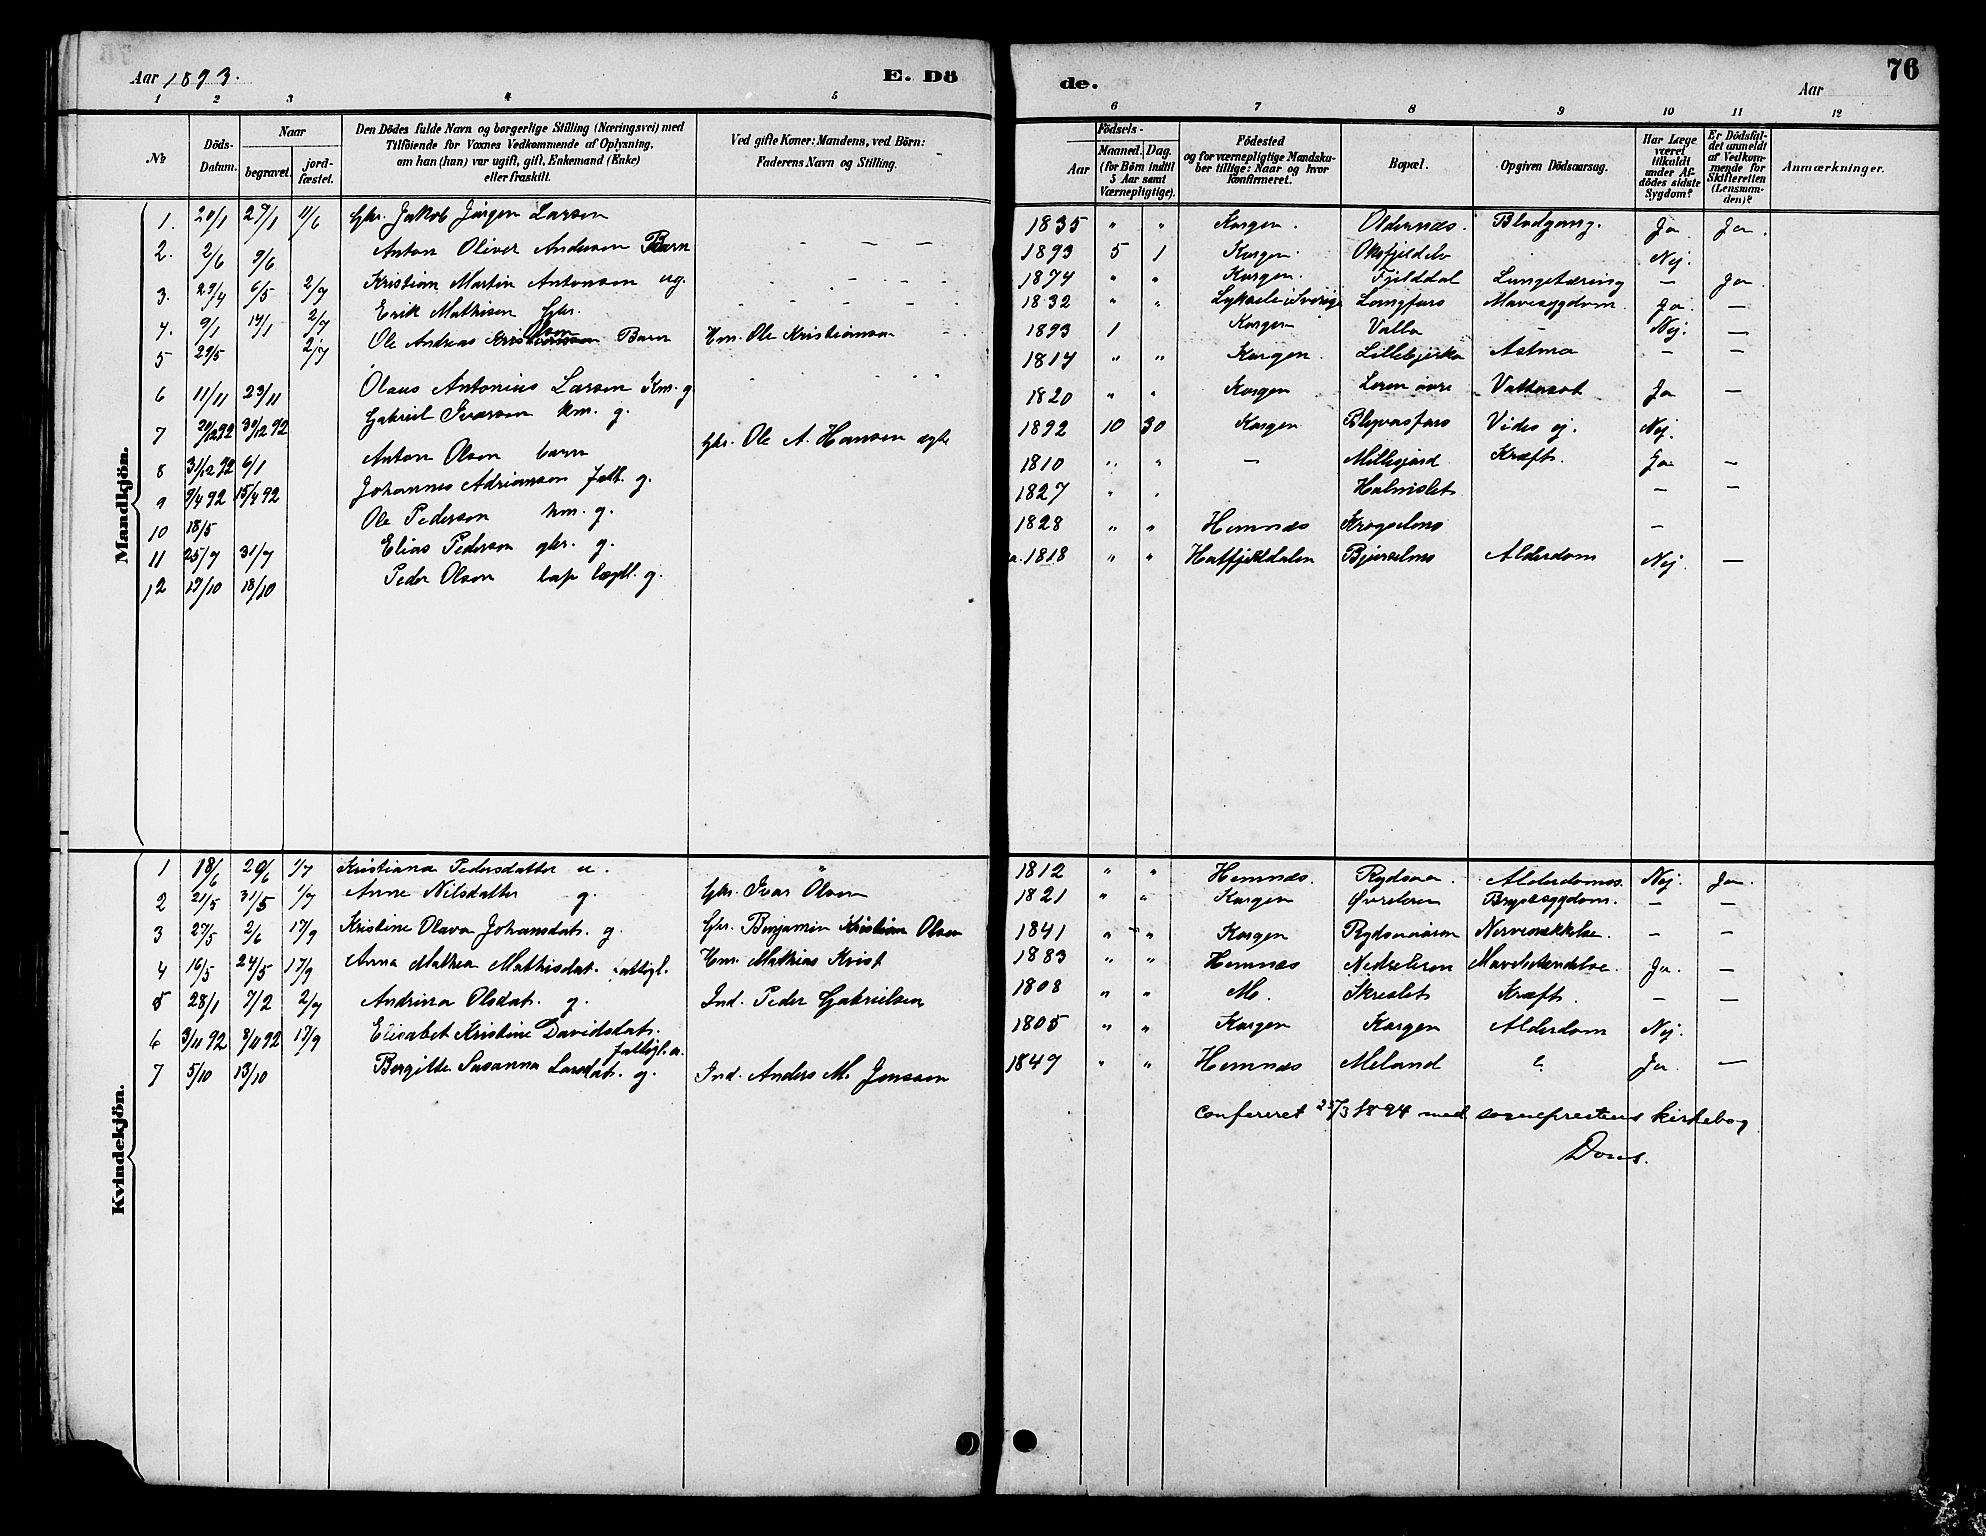 Aar 1893. E. Dö de. Aar 76
1 2 3 4 5 6 7 8 9 10 11 12
No
Döds-Datum.
Naar begravet. jord-fæstet.
Den Dödes fulde Navn og borgerlige Stilling (Næringsvei) med Tilföiende for Voxnes Vedkommende af Oplysning, om han (hun) var ugift, gift, Enkemand (Enke) eller fraskilt.
Ved gifte Koner: Mandens, ved Börn: Faderens Navn og Stilling.
Födsels-
Aar Maaned. Dag. (for Börn indtil 5 Aar samt Værnepligtige).
Födested og for værnepligtige Mandskaber tillige: Naar og hvor konfirmeret.
Bopæl.
Opgiven Dödsaarsag.
Har Læge været tilkaldt under Afdödes sidste Sygdom?
Er Dödsfaldet anmeldt af Vedkommende for Skifteretten (Lensmanden)?
Anmærkninger.
Mandkjön.
1. 20/1 27/1 11/6 Gbr. Jakob Jörgen Larsen 1835 " " Korgen. Oldernæs. Blodgang. Ja Ja.
2. 2/6 9/6 Anton Oliver Andersen Barn 1893 5 1 Korgen. Oksfjeldelv Nej.
3. 29/4 6/5 2/7 Kristian Martin Antonsen ug. 1874 " " Korgen. Fjelddal Lungetæring — Ja
4. 9/1 14/1 2/7 Erik Mathisen Gbr. 1832 " " Lyksele i Sverige Langfors Mavesygdom. Ja. —
5 29/5 2/7 Ole Andreas Olsen Barn Hm. Ole Kristiansen 1893 1 Korgen Valla — Nej. —
6 11/11 23/11 Olaus Antonius Larsen Km. g 1814 " " Korgen. Lillebjerka Astma — —
7 20/12 92 30/12 92 Gabriel Ivarsen km. g. 1820 " " Korgen Leren övre Vattersot Ja —
8 31/12 92 6/1 Anton Olsen barn Gbr. Ole A. Hansen ægte 1892 10 30 Korgen Vides ej. Nej.
9 9/4 92 15/4 92 Johannes Adriansen g. 1810 " " — Kræft. Ja —
10 18/5 Ole Pedersen km. g. 1827 " " Halmslet — —
11 25/7 31/7 Elias Pedersen gbr. g. 1828 " " Hemnæs —
12 17/10 18/10 Peder Olsen lap lægdl. g. 1818 " " Hatfjelddalen Alderdom Nej. —
Kvindekjön.
1 18/6 20/6 1/7 Kristiana Pedersdatter u. " 1812 " " Hemnæs. Alderdoms. Nej. Ja.
2 21/5 31/5 1/7 Anne Nilsdatter g. Gbr. Ivar Olsen 1821 " " Korgen Övreleren Brystsygdom. — —
3 27/5 2/6 17/9 Kristine Olava Johansdat. g. Gbr. Benjamin Kristian Olsen 1841 " " Korgen — —
4 16/5 24/5 17/9 Anna Mathea Mathisdat. fattigl. Hm. Mathias Kvist 1883 " " Hemnæs Nedreleren Ja. —
5 28/1 7/2 2/7 Andrina Olsdat. g. Ind. Peder Gabrielsen 1808 " " M. Skreslet Kræft. — —
6 3/11 92 8/11 92 17/9 Elisabet Kristine Davidsdat. fattigl. u. 1805 " " Korgen Korgen Alderdom Nej.
7 5/10 13/10 Bergitte Susanna Larsdat. g. Ind. Anders M. Jonssen 1849 " " Hemnæs Meland Ja —
Confereret 25/3 1894 med sogneprestens kirkebog